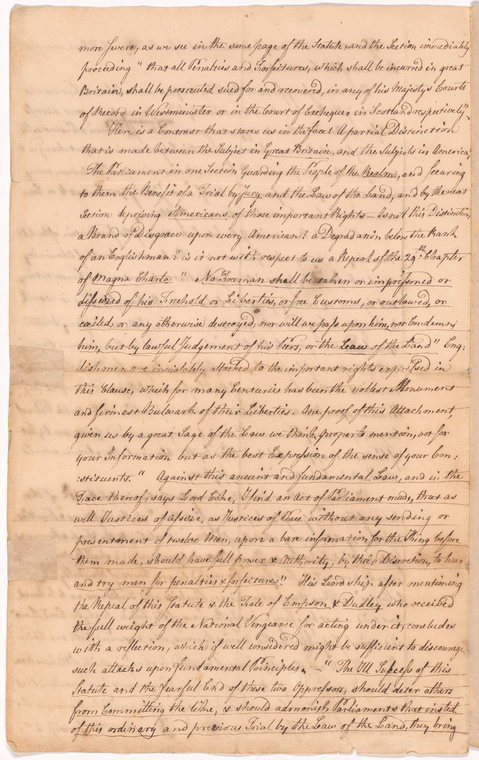 more severe, as we see in the same page of the Statute and the Section immediately
preceeding "that all Penalties and Forfeitures, which shall be incurred in great
Britain, shall be prosecuted sued for and recovered, in any of his Majestys Courts
of Record in Westminster or in the Court of Exchequer in Scotland respectively".
Here is a Contrast that stares us in the face! A partial Distinction
that is made between the Subject in Great Britain, and the Subjects in America!
The Parliament in one Section Guarding the People of the Realm, and securing
to them the Benefit of a Trial by Jury and the Law of the Land, and by the next
Section depriving Americans of those important Rights — Is not this Distinction
a Brand of Disgrace upon every American? a Degradation below the Rank
of an Englishman? is it not with respect to us a Repeal of the 29th Chapter
of Magna Charta? "No Freeman shall be taken or imprisoned or
disseized of his Freehold or Liberties, or free Customs, or outlawed, or
exiled, or any otherwise destroyed, nor will we pass upon him, nor Condemn
him, but by lawful Judgement of his Peers, or the Law of the Land" Eng:
:lishmen are inviolably attached to the important rights expressed in
this Clause, which for many Centuries has been the noblest Monument
and firmest Bulwark of their Liberties. One proof of this Attachment
given us by a great Sage of the Law we think proper to mention, not for
your Information but as the best Expression of the sense of your Con:
:stituents. "Against this ancient and fundamental Law, and in the
Face thereof, says Lord Coke, I find an Act of Parliament made, that as
well Justices of assize, as Justices of Peace without any finding or
presentment of twelve Men, upon a bare information for the King before
them made, should have full power & Authority, by their Discretion, to hear
and try men for penalties & forfeitures". His Lordship after mentioning
the Repeal of this Statute & the Fate of Empson & Dudley, who received
the full weight of the National Vengeance for acting under it, concludes
with a reflection, which if well considered might be sufficient to discourage
such attacks upon fundamental Principles. — "The Ill Success of this
Statute and the fearful End of these two Oppressors, should deter others
from Committing the like, & should admonish Parliaments that insted
of this ordinary and precious Trial by the Law of the Land, they bring